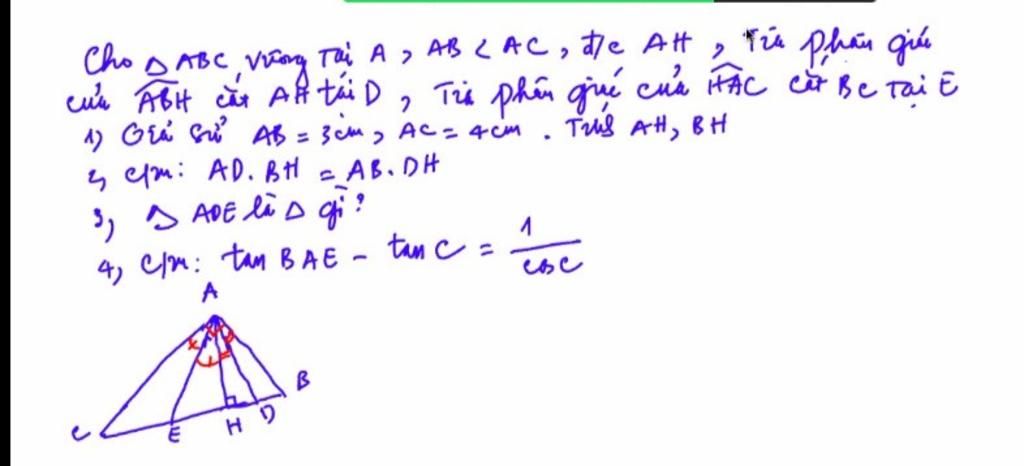 Cho △ABC, vuông tại A, AB < AC, đ/c AH, Tia phân giác
của ABH cắt AH tại D, Tia phân giác của HAC cắt BC tại E
1) Giả sử AB = 3cm, AC = 4cm. Tính AH, BH
2, c/m: AD.BH = AB.DH
3, △ ADE là △ gì?
4, c/m: tan BAE - tan C = 1/cos C
A
B
C E H D